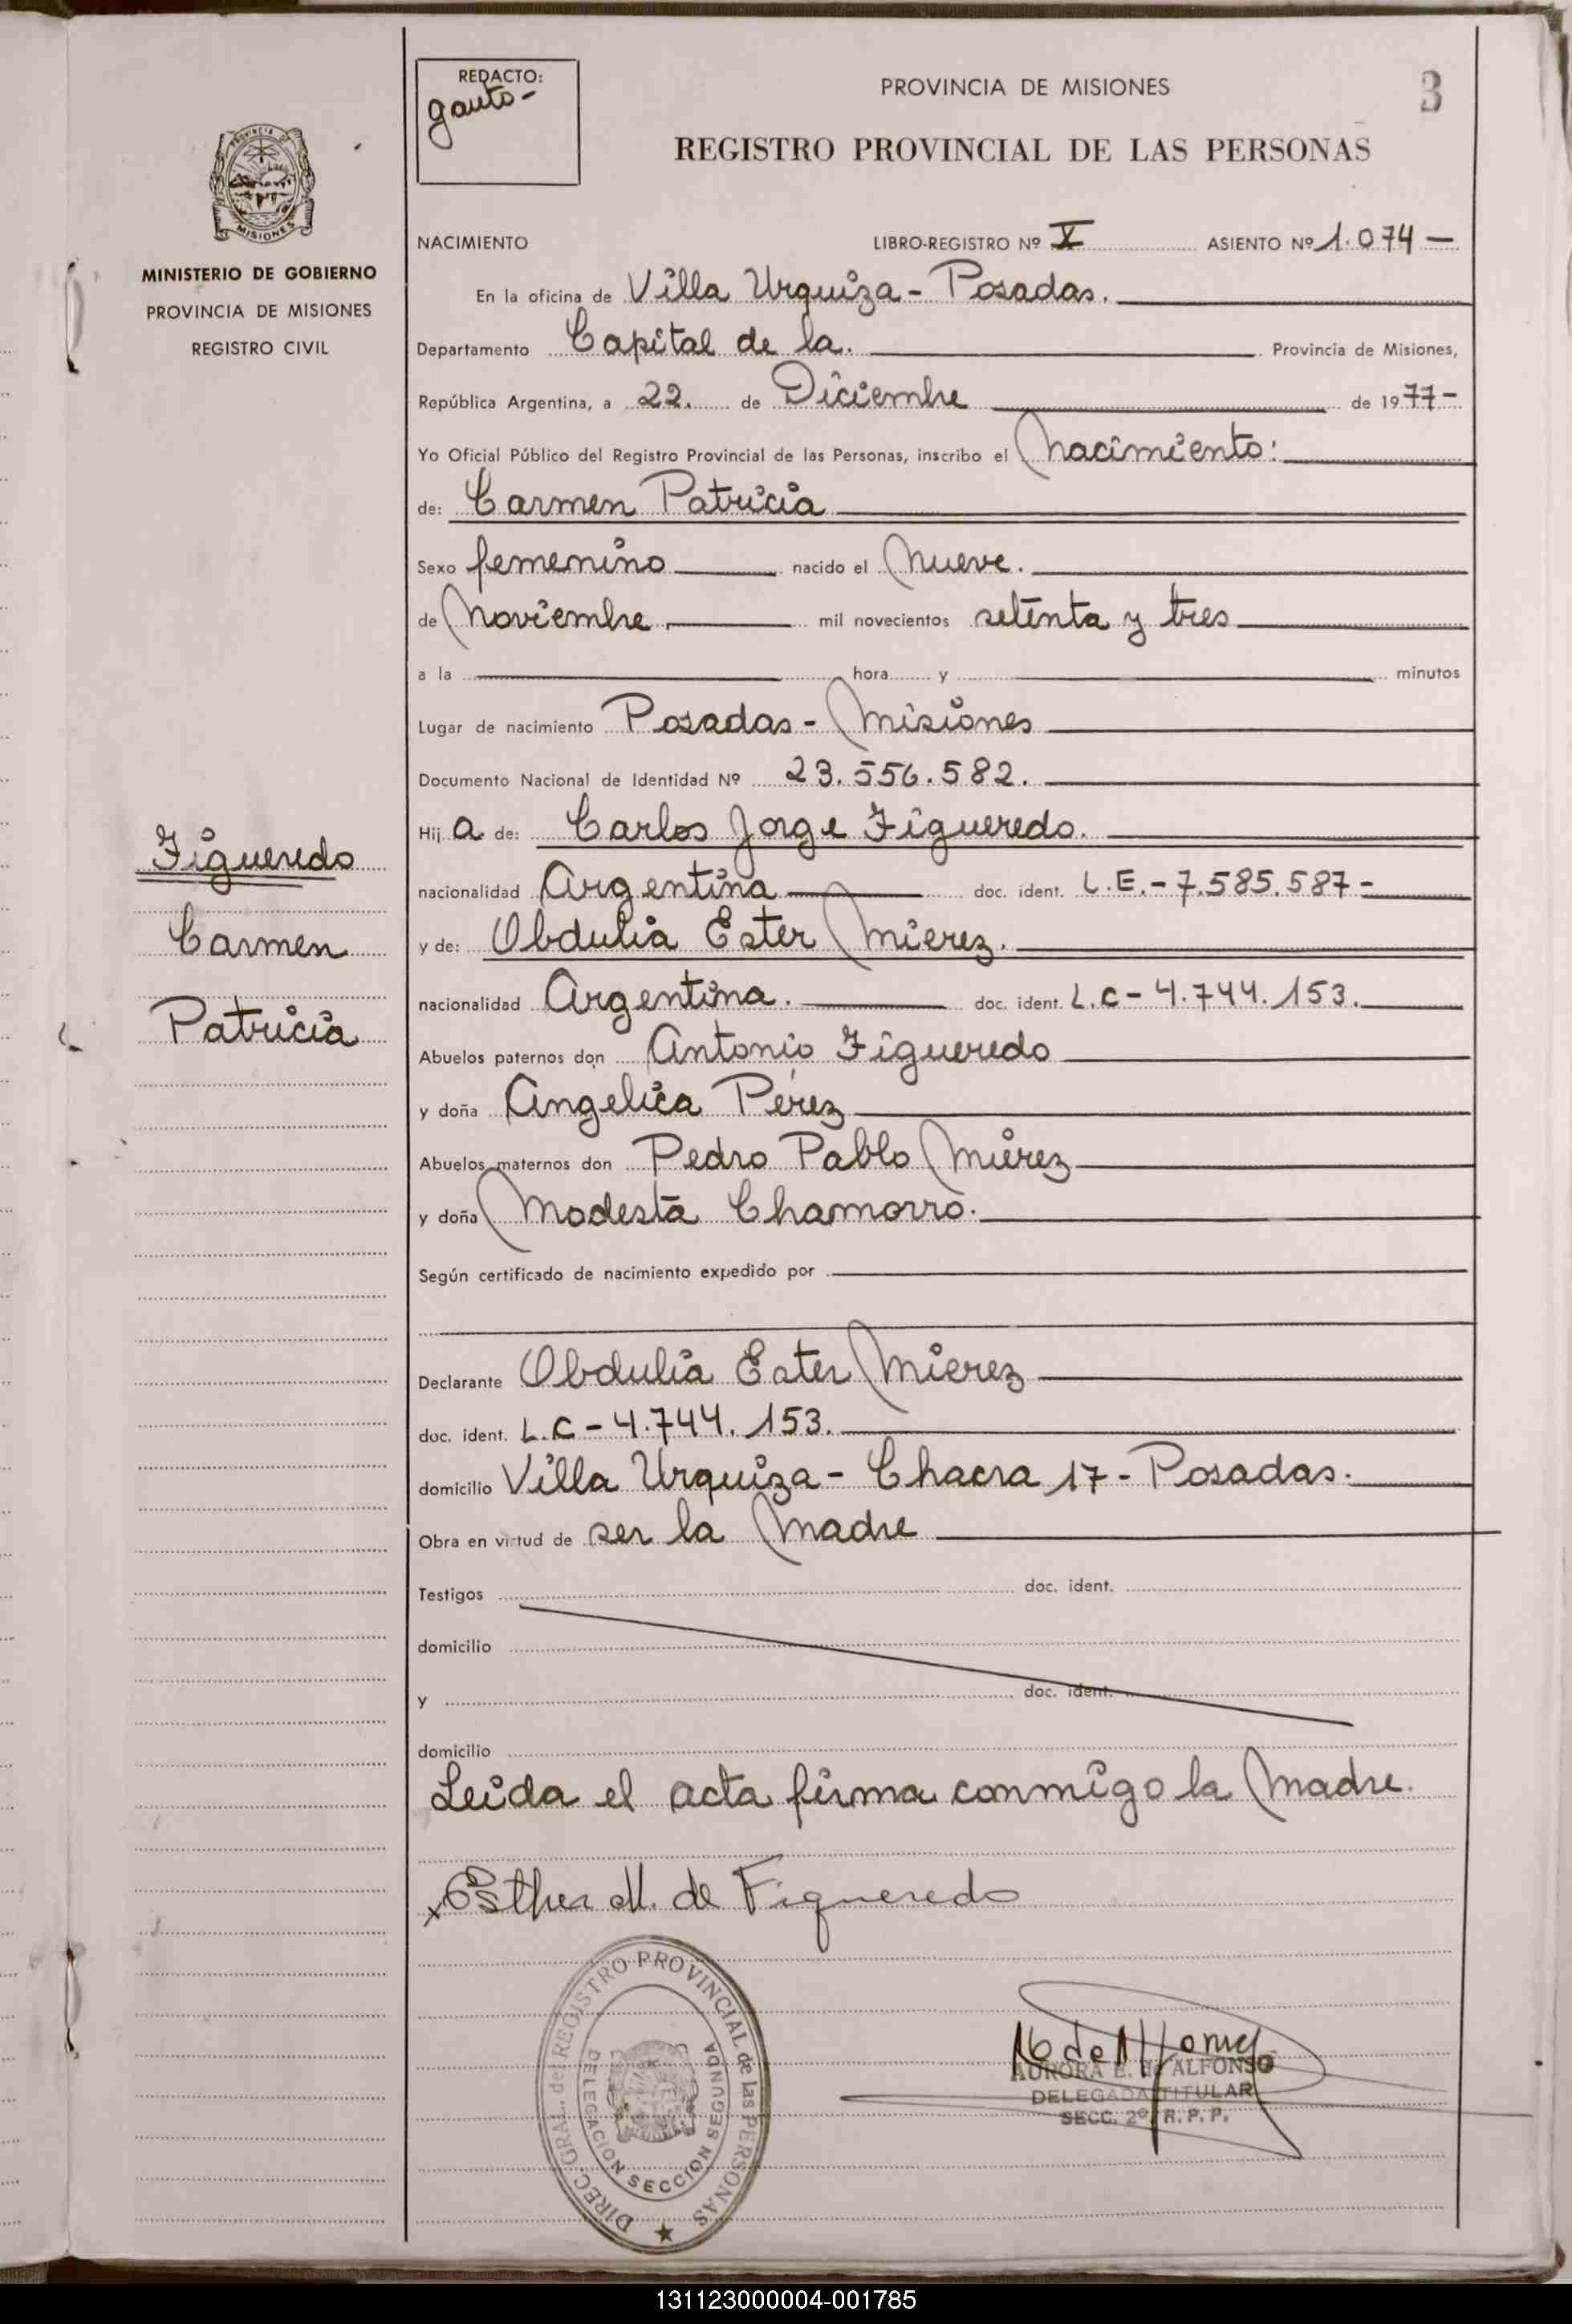 REDACTO:
gauto-
PROVINCIA DE MISIONES
3
REGISTRO PROVINCIAL DE LAS PERSONAS
MISIONES
MINISTERIO DE GOBIERNO
PROVINCIA DE MISIONES
REGISTRO CIVIL
NACIMIENTO LIBRO-REGISTRO Nº X ASIENTO Nº 1.074-
En la oficina de Villa Urquiza - Posadas.
Departamento Capital de la. Provincia de Misiones,
República Argentina, a 22. de Diciembre de 1977-
Yo Oficial Público del Registro Provincial de las Personas, inscribo el Nacimiento:
de: Carmen Patricia
Sexo femenino nacido el Nueve.
de Noviembre. mil novecientos setenta y tres
a la hora y minutos
Lugar de nacimiento Posadas - Misiones
Documento Nacional de Identidad Nº 23.556.582.
Hij a de: Carlos Jorge Figueredo.
nacionalidad Argentina doc. ident. L.E.-7.585.587-
y de: Obdulia Ester Mierez.
nacionalidad Argentina. doc. ident. L.C-4.744.153.
Abuelos paternos don Antonio Figueredo
y doña Angelica Pérez
Abuelos maternos don Pedro Pablo Mierez
y doña Modesta Chamorro.
Según certificado de nacimiento expedido por
Declarante Obdulia Ester Mierez
doc. ident. L.C-4.744.153.
domicilio Villa Urquiza - Chacra 17 - Posadas.
Obra en virtud de ser la Madre
Testigos doc. ident.
domicilio
y doc. ident.
domicilio
Leida el acta firma conmigo la Madre.
x Esther M. de Figueredo
Figueredo
Carmen
Patricia
DIREC. GRAL. del REGISTRO PROVINCIAL de las PERSONAS
DELEGACION SECCION SEGUNDA
AURORA E. de ALFONSO
DELEGADA TITULAR
SECC. 2º R.P.P.
131123000004-001785